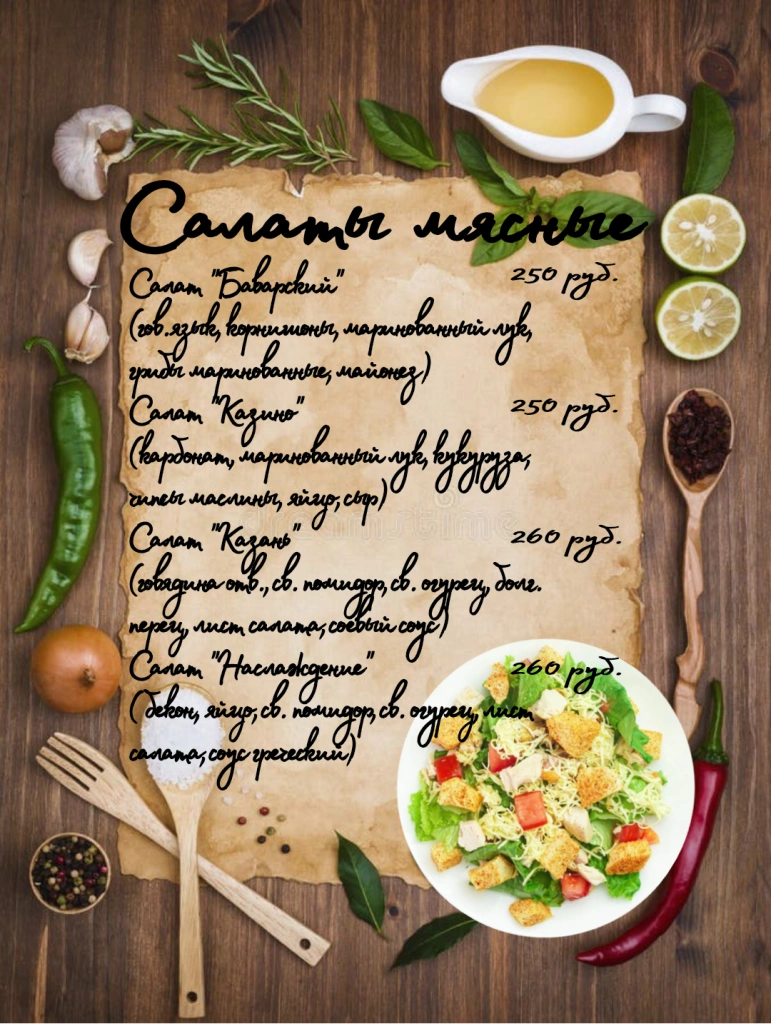 Салаты мясные
Салат "Баварский" 250 руб.
(гов.язык, корнишоны, маринованный лук,
грибы маринованные, майонез)
Салат "Казино" 250 руб.
(карбонат, маринованный лук, кукуруза,
чипсы маслины, яйцо, сыр)
Салат "Казань" 260 руб.
(говядина отв., св. помидор, св. огурец, болг.
перец, лист салата, соевый соус)
Салат "Наслаждение" 260 руб.
( бекон, яйцо, св. помидор, св. огурец, лист
салата, соус греческий)